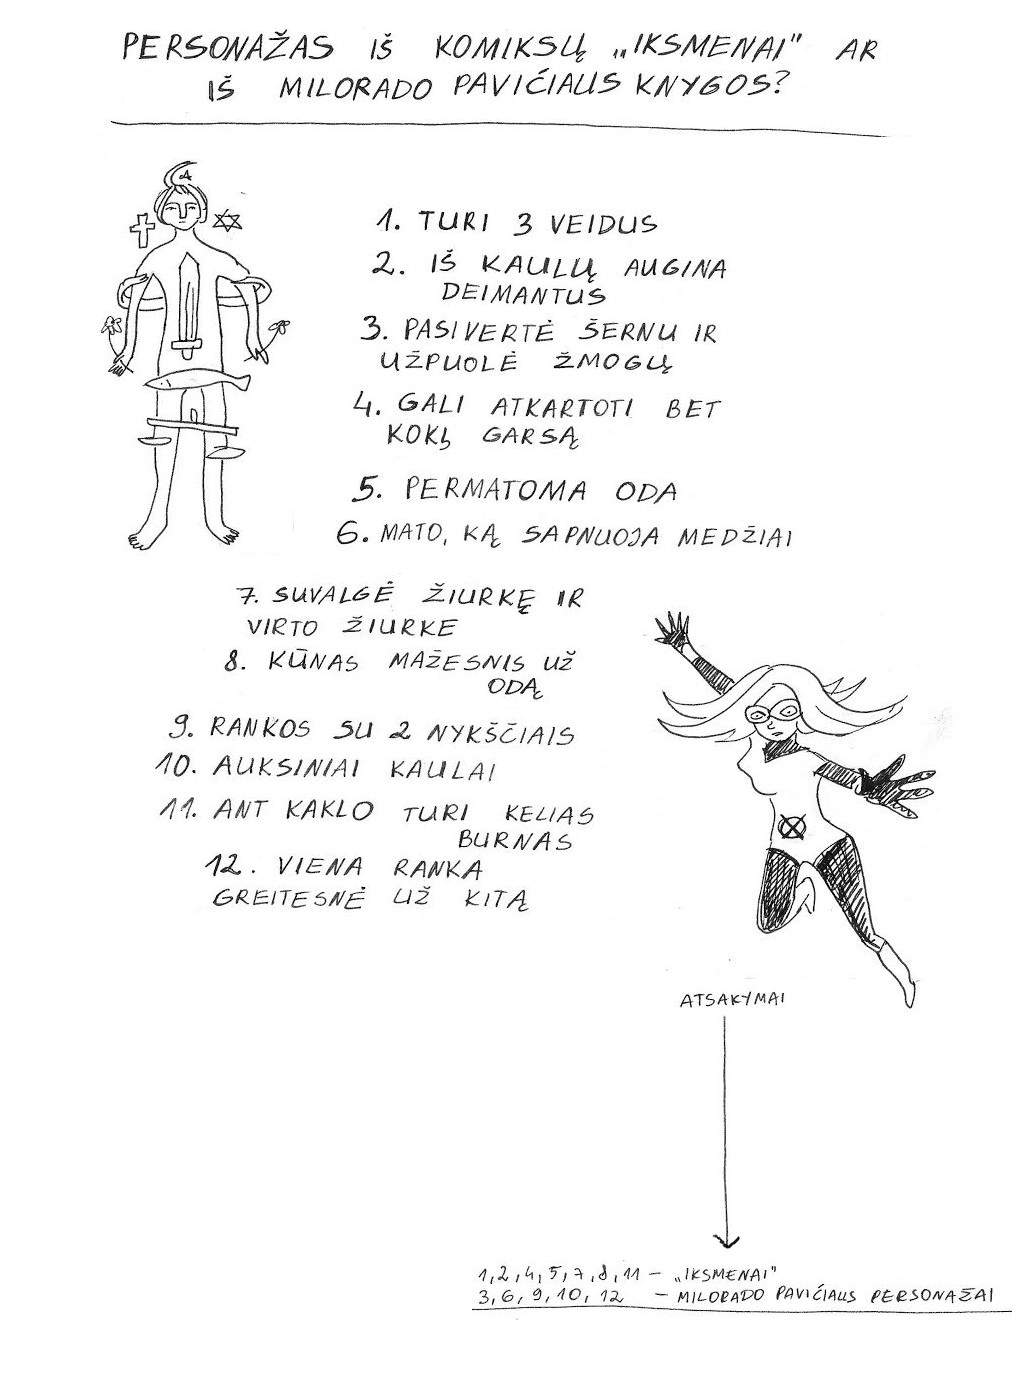 PERSONAŽAS IŠ KOMIKSŲ „IKSMENAI" AR
IŠ MILORADO PAVIĆIAUS KNYGOS?
1. TURI 3 VEIDUS
2. IŠ KAULŲ AUGINA
DEIMANTUS
3. PASIVERTĖ ŠERNU IR
UŽPUOLĖ ŽMOGŲ
4. GALI ATKARTOTI BET
KOKĮ GARSĄ
5. PERMATOMA ODA
6. MATO, KĄ SAPNUOJA MEDŽIAI
7. SUVALGĖ ŽIURKĘ IR
VIRTO ŽIURKE
8. KŪNAS MAŽESNIS UŽ
ODĄ
9. RANKOS SU 2 NYKŠČIAIS
10. AUKSINIAI KAULAI
11. ANT KAKLO TURI KELIAS
BURNAS
12. VIENA RANKA
GREITESNĖ UŽ KITĄ
ATSAKYMAI
1, 2, 4, 5, 7, 8, 11 – „IKSMENAI"
3, 6, 9, 10, 12 – MILORADO PAVIĆIAUS PERSONAŽAI